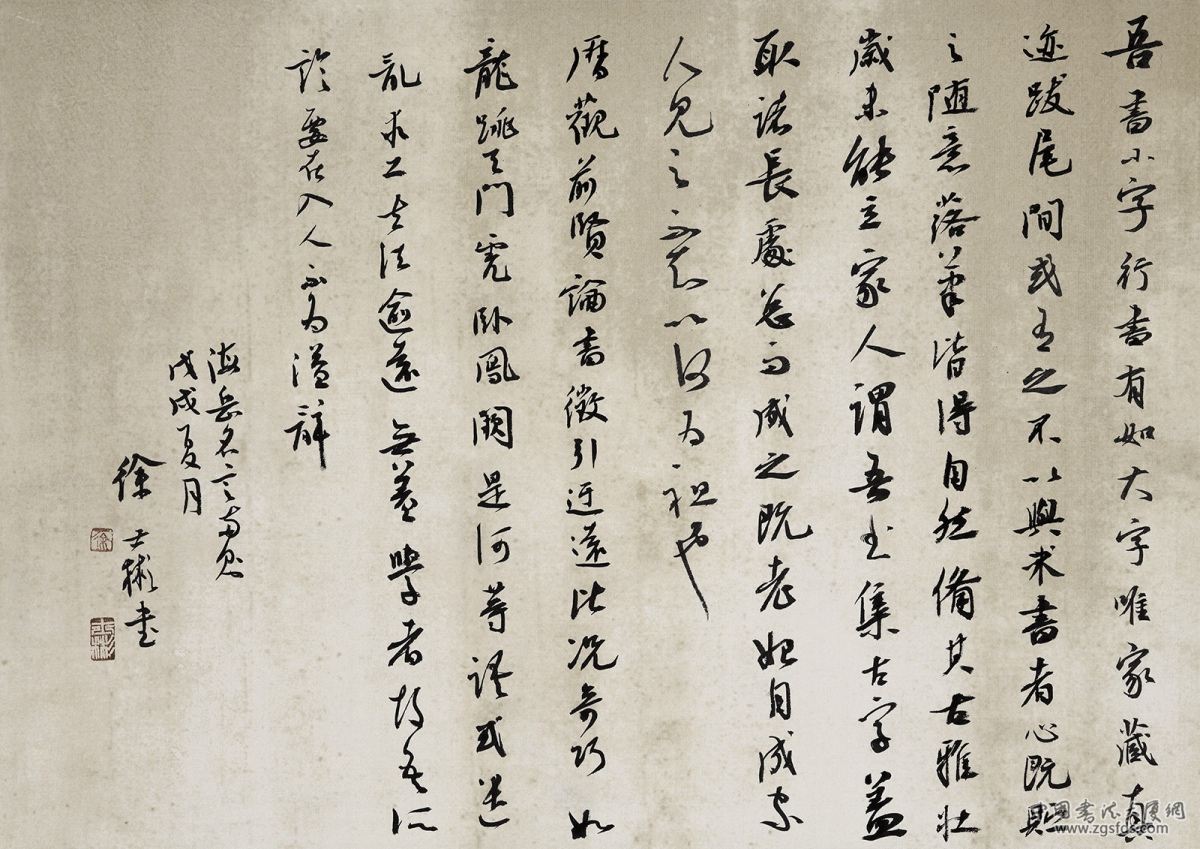 吾書小字行書有如大字唯家藏真
迹跋尾間或有之不以與求書者心既貯
之随意落筆皆得自然備其古雅壯
歲未能立家人謂吾書集古字蓋
取諸長處總而成之既老始自成家
人見之不知以何為祖也
曆觀前賢論書徵引迂遠比況奇巧如
龍跳天門虎卧鳳闕是何等語或遣
辭求工去法逾遠無益學者故吾所
論要在入人不為溢辭
海岳名言両則
戊戌夏月
徐士彬書
徐
士彬
中國書法大厦網
www.zgsfds.com